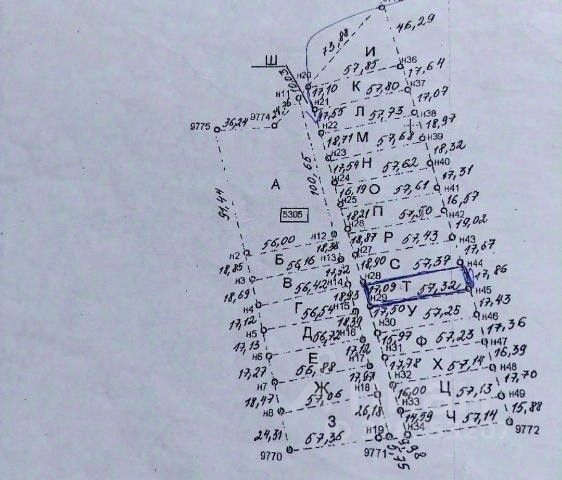 46,29
73,88
И
Ш
57,85
н36
17,64
н20
17,10
К
57,80
н37
17,07
н1
н21
17,55
Л
57,73
н38
9774
36,24
9775
н22
18,97
18,71
М
57,68
н39
н23
18,32
17,59
Н
57,62
н40
100,65
н24
17,31
А
16,19
О
57,61
н41
91,44
н25
16,57
5305
18,21
П
57,50
н42
н26
19,02
н12
18,87
Р
57,43
н43
н2
56,00
18,36
н27
17,67
Б
н13
18,90
С
57,37
н44
18,85
56,16
17,52
н28
17,86
н3
В
56,42
н14
17,09
Т
57,32
н45
18,69
18,95
н29
н4
Г
56,54
н15
17,50
У
57,25
17,43
17,12
18,39
н30
н46
н5
Д
56,72
н16
15,97
Ф
57,23
17,36
17,13
17,12
н31
н47
н6
Е
56,88
н17
17,78
Х
57,14
16,39
17,27
17,97
н32
н48
н7
Ж
57,06
н18
16,00
Ц
57,13
17,70
18,47
н33
н49
н8
26,18
14,59
Ч
57,14
15,88
24,31
З
57,35
н19
н34
9772
9770
9771
5,75